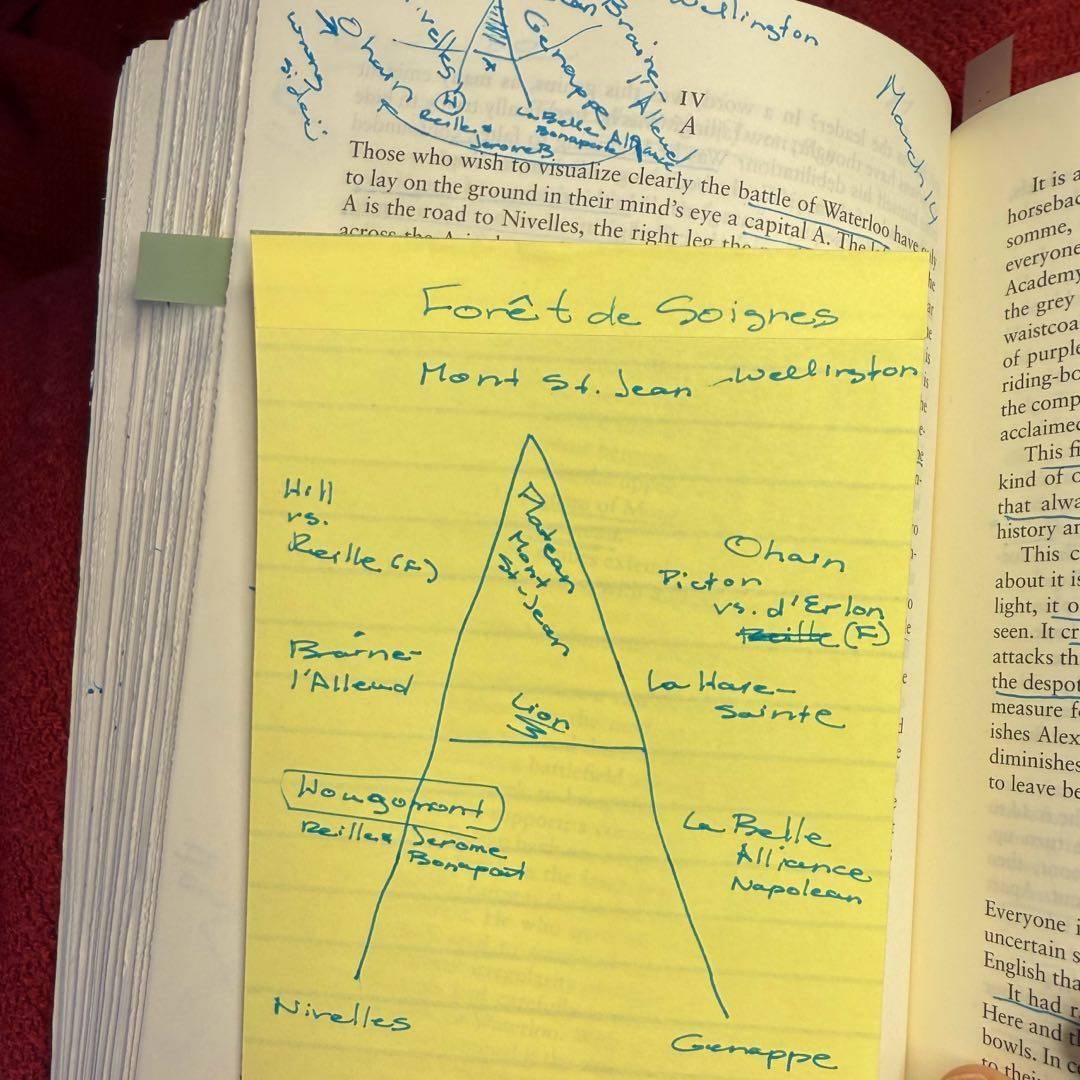 Wellington
March 14
Braine
l'Alleud
Genappe
Nivelles
Ohain
wrong
side!
H
x
Reille &
Jerome B
La Belle
Alliance
Bonaparte
IV
A
Those who wish to visualize clearly the battle of Waterloo have
to lay on the ground in their mind's eye a capital A. The
A is the road to Nivelles, the right leg the
across the A is
Forêt de Soignes
Mont St. Jean - Wellington
Hill
vs.
Reille (F)
Plateau
Mont
St-Jean
Ohain
Picton
vs. d'Erlon
Reille (F)
Braine-
l'Alleud
La Haie-
Sainte
Lion
Hougomont
Reille & Jerome
Bonapart
La Belle
Alliance
Napolean
Nivelles
Genappe
It is a
horseback
somme,
everyone
Academy
the grey
waistcoa
of purple
riding-bo
the comp
acclaimed
This fi
kind of
that alwa
history an
This c
about it is
light, it o
seen. It cr
attacks th
the despot
measure fo
ishes Alex
diminishes
to leave be
Everyone i
uncertain s
English tha
It had r
Here and th
bowls. In c
to thei